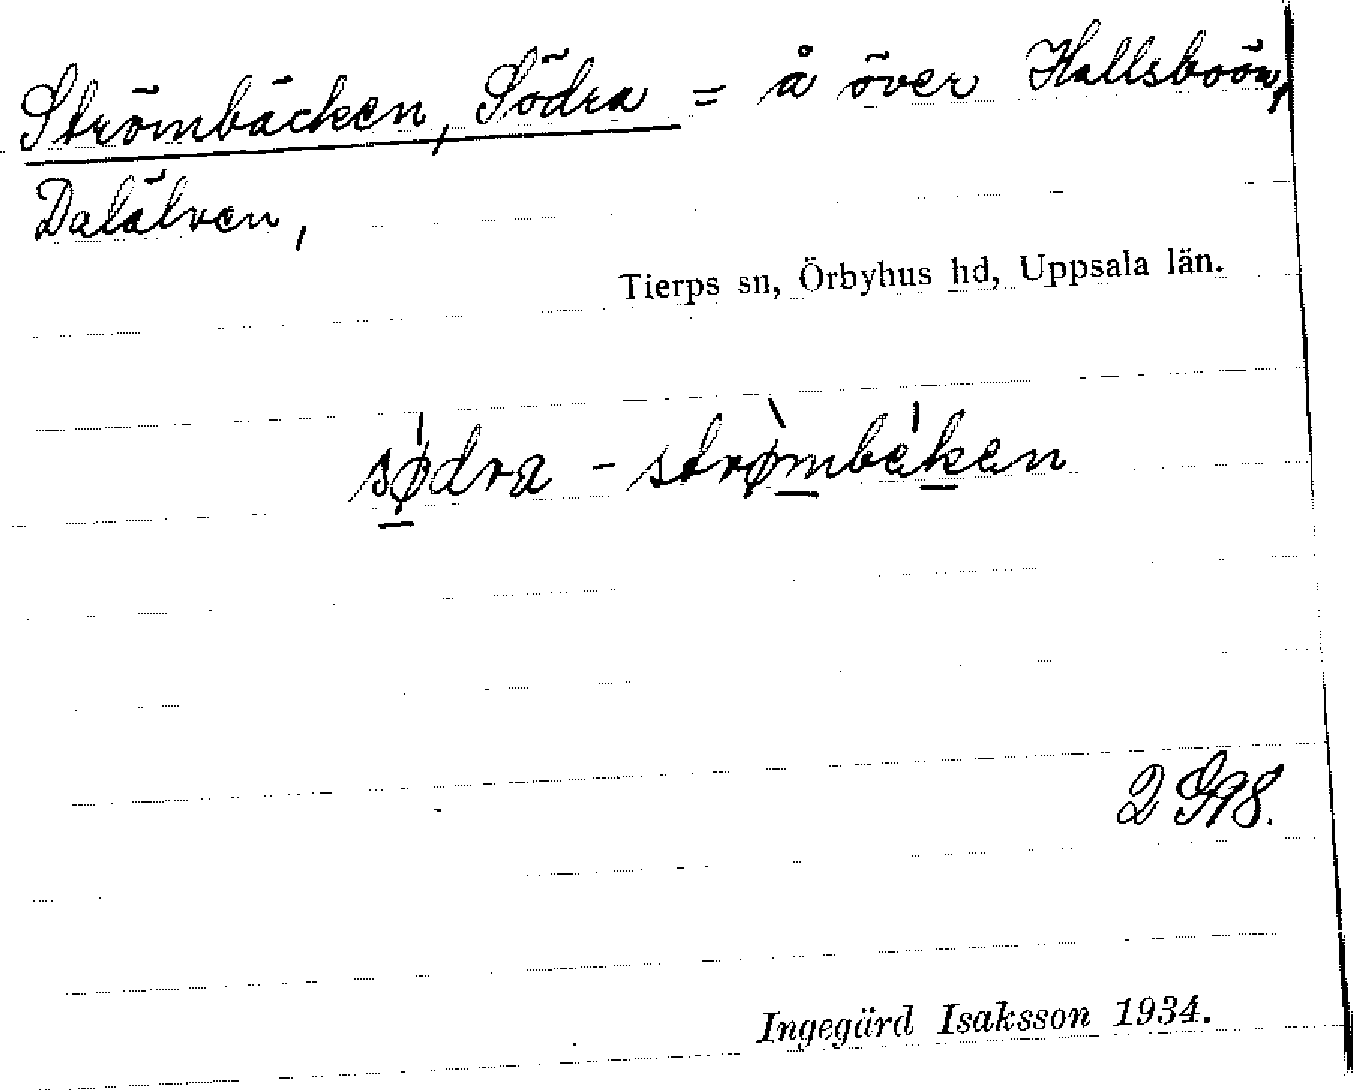 Strömbäcken, Södra = å över Hallsboön,
Dalälven,
Tierps sn, Örbyhus hd, Uppsala län.
sø̀dra - strømbeken
Ingegärd Isaksson 1934.